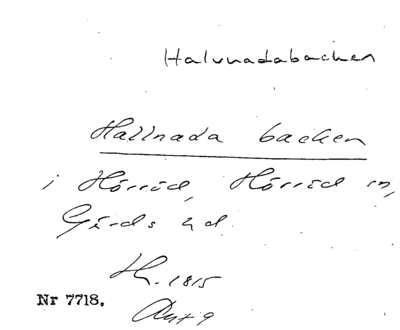 Halvnadabacken
Hallnada backen
i Hörröd, Hörröd sn,
Gärds hd.
H. 1815
Nr 7718.